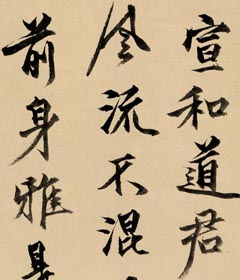 宣和道君
風流不混
前身雅